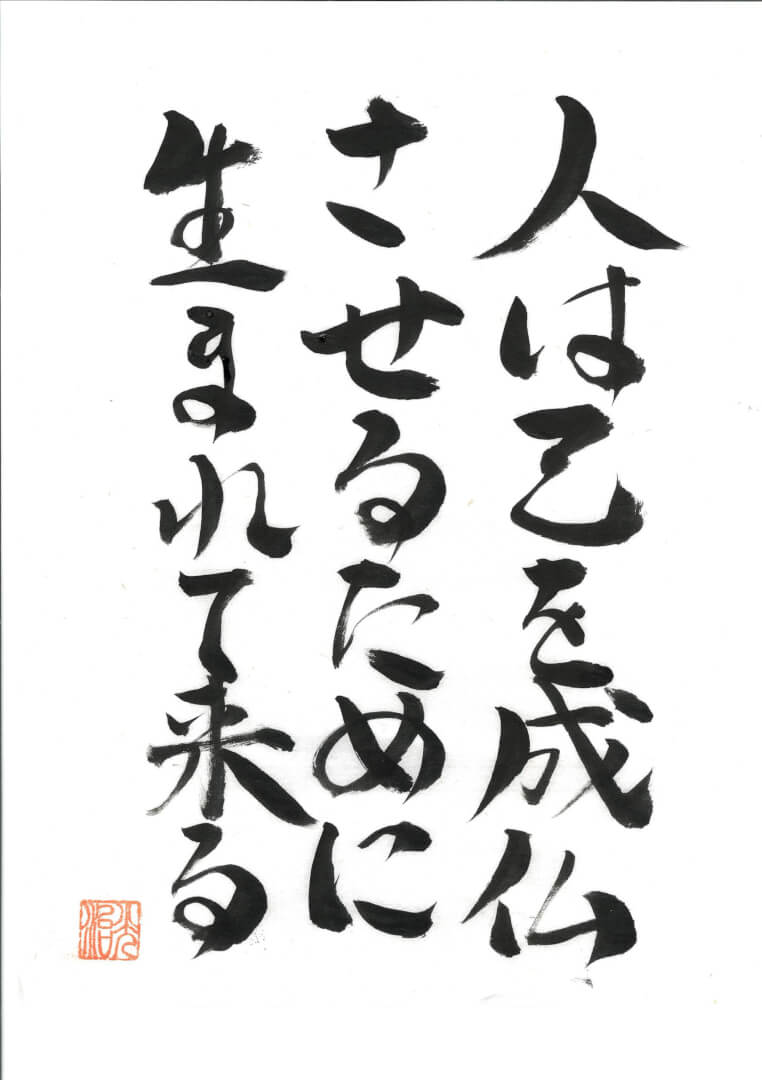 人は己を成仏
させるために
生まれて来る